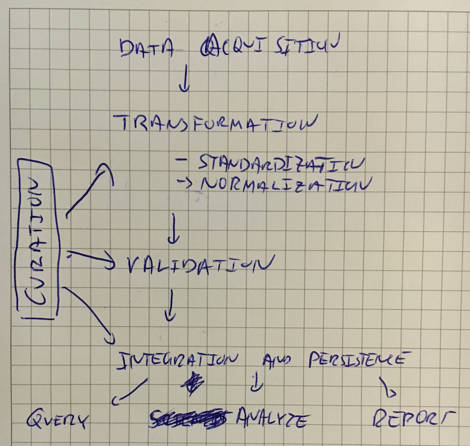 DATA ACQUISITION
TRANSFORMATION
- STANDARDIZATION
-> NORMALIZATION
CURATION
VALIDATION
INTEGRATION AND PERSISTENCE
QUERY ANALYZE REPORT